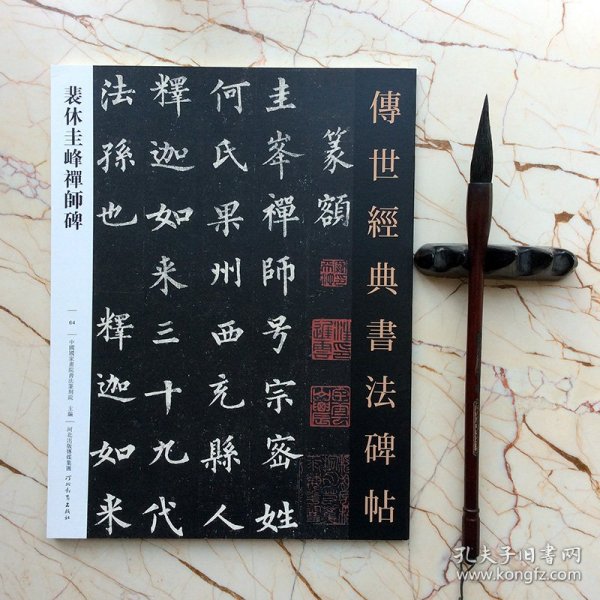 傳世經典書法碑帖
篆額
圭峯禪師号宗密姓
何氏果州西充縣人
釋迦如来三十九代
法孫也 釋迦如来
裴休圭峰禪師碑
64
中國國家畫院書法篆刻院 主編
河北出版傳媒集團
河北教育出版社
孔夫子旧书网
www.kongfz.com